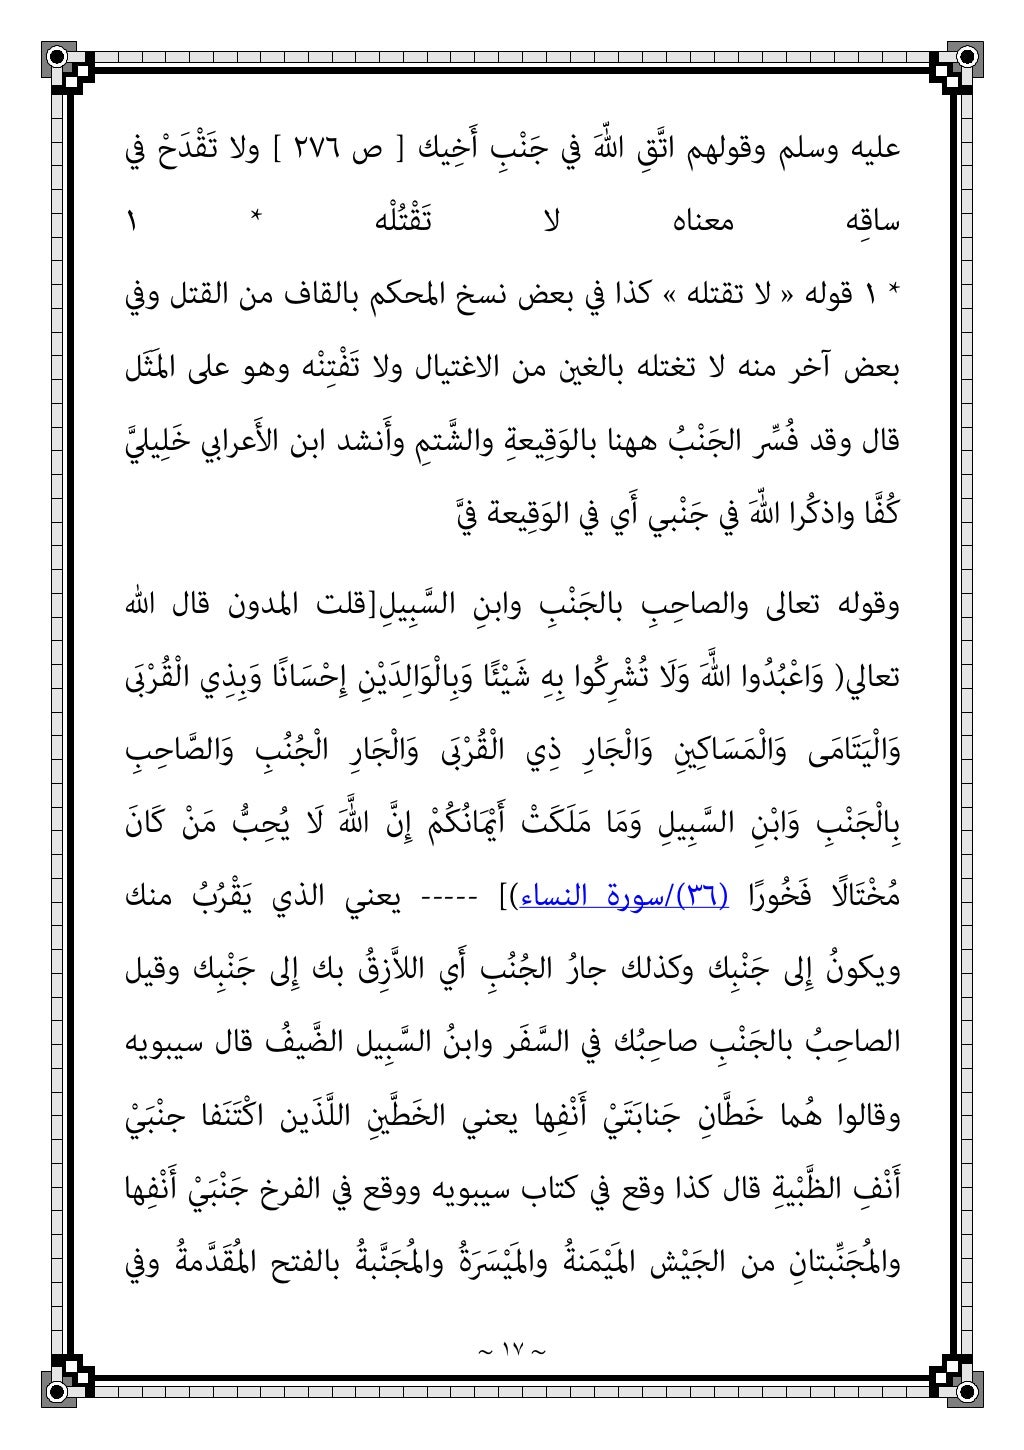 عليه وسلم وقولهم اتَّقِ اللّهَ في جَنْبِ أَخِيك [ ص ٢٧٦ ] ولا تَقْدَحْ في
ساقِه معناه لا تَقْتُلْه * ١
* ١ قوله « لا تقتله » كذا في بعض نسخ المحكم بالقاف من القتل وفي
بعض آخر منه لا تغتله بالغين من الاغتيال ولا تَفْتِنْه وهو على المَثَل
قال وقد فُسِّر الجَنْبُ ههنا بالوَقِيعةِ والشَّتمِ وأَنشد ابن الأَعرابي خَلِيليَّ
كُفَّا واذكُرا اللّهَ في جَنْبي أَي في الوَقِيعة فيَّ
وقوله تعالى والصاحِبِ بالجَنْبِ وابنِ السَّبِيلِ[قلت المدون قال الله
تعالي( وَاعْبُدُوا اللَّهَ وَلَا تُشْرِكُوا بِهِ شَيْئًا وَبِالْوَالِدَيْنِ إِحْسَانًا وَبِذِي الْقُرْبَى
وَالْيَتَامَى وَالْمَسَاكِينِ وَالْجَارِ ذِي الْقُرْبَى وَالْجَارِ الْجُنُبِ وَالصَّاحِبِ
بِالْجَنْبِ وَابْنِ السَّبِيلِ وَمَا مَلَكَتْ أَيْمَانُكُمْ إِنَّ اللَّهَ لَا يُحِبُّ مَنْ كَانَ
مُخْتَالًا فَخُورًا (٣٦)/سورة النساء)] ----- يعني الذي يَقْرُبُ منك
ويكونُ إِلى جَنْبِك وكذلك جارُ الجُنُبِ أَي اللاَّزِقُ بك إِلى جَنْبِك وقيل
الصاحِبُ بالجَنْبِ صاحِبُك في السَّفَر وابنُ السَّبِيل الضَّيفُ قال سيبويه
وقالوا هُما خَطَّانِ جَنابَتَيْ أَنْفِها يعني الخَطَّينِ اللَّذَين اكْتَنَفا جنْبَيْ
أَنْفِ الظَّبْيةِ قال كذا وقع في كتاب سيبويه ووقع في الفرخ جَنْبَيْ أَنْفِها
والمُجَنِّبتانِ من الجَيْش المَيْمَنةُ والمَيْسَرَةُ والمُجَنَّبةُ بالفتح المُقَدَّمةُ وفي
~ ١٧ ~